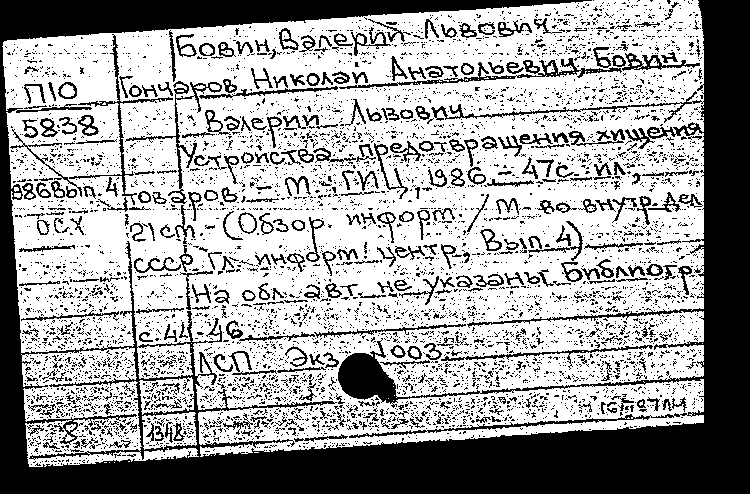 Бовин, Валерий Львович
П10 Гончаров, Николай Анатольевич, Бовин,
5838 Валерий Львович.
Устройства предотвращения хищения
986 Вып. 4 товаров. - М.: ГИЦ, 1986. - 47с.: ил.,
ОСХ 21 см. - (Обзор. информ. / М-во внутр. дел
СССР, Гл. информ. центр, Вып. 4)
На обл. авт. не указаны. Библиогр.
с. 44-46.
ЛСП Экз. N003.
8 1348